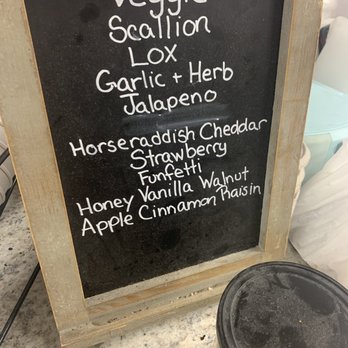 Veggie
Scallion
Lox
Garlic + Herb
Jalapeno
Horseraddish Cheddar
Strawberry
Funfetti
Honey Vanilla Walnut
Apple Cinnamon Raisin